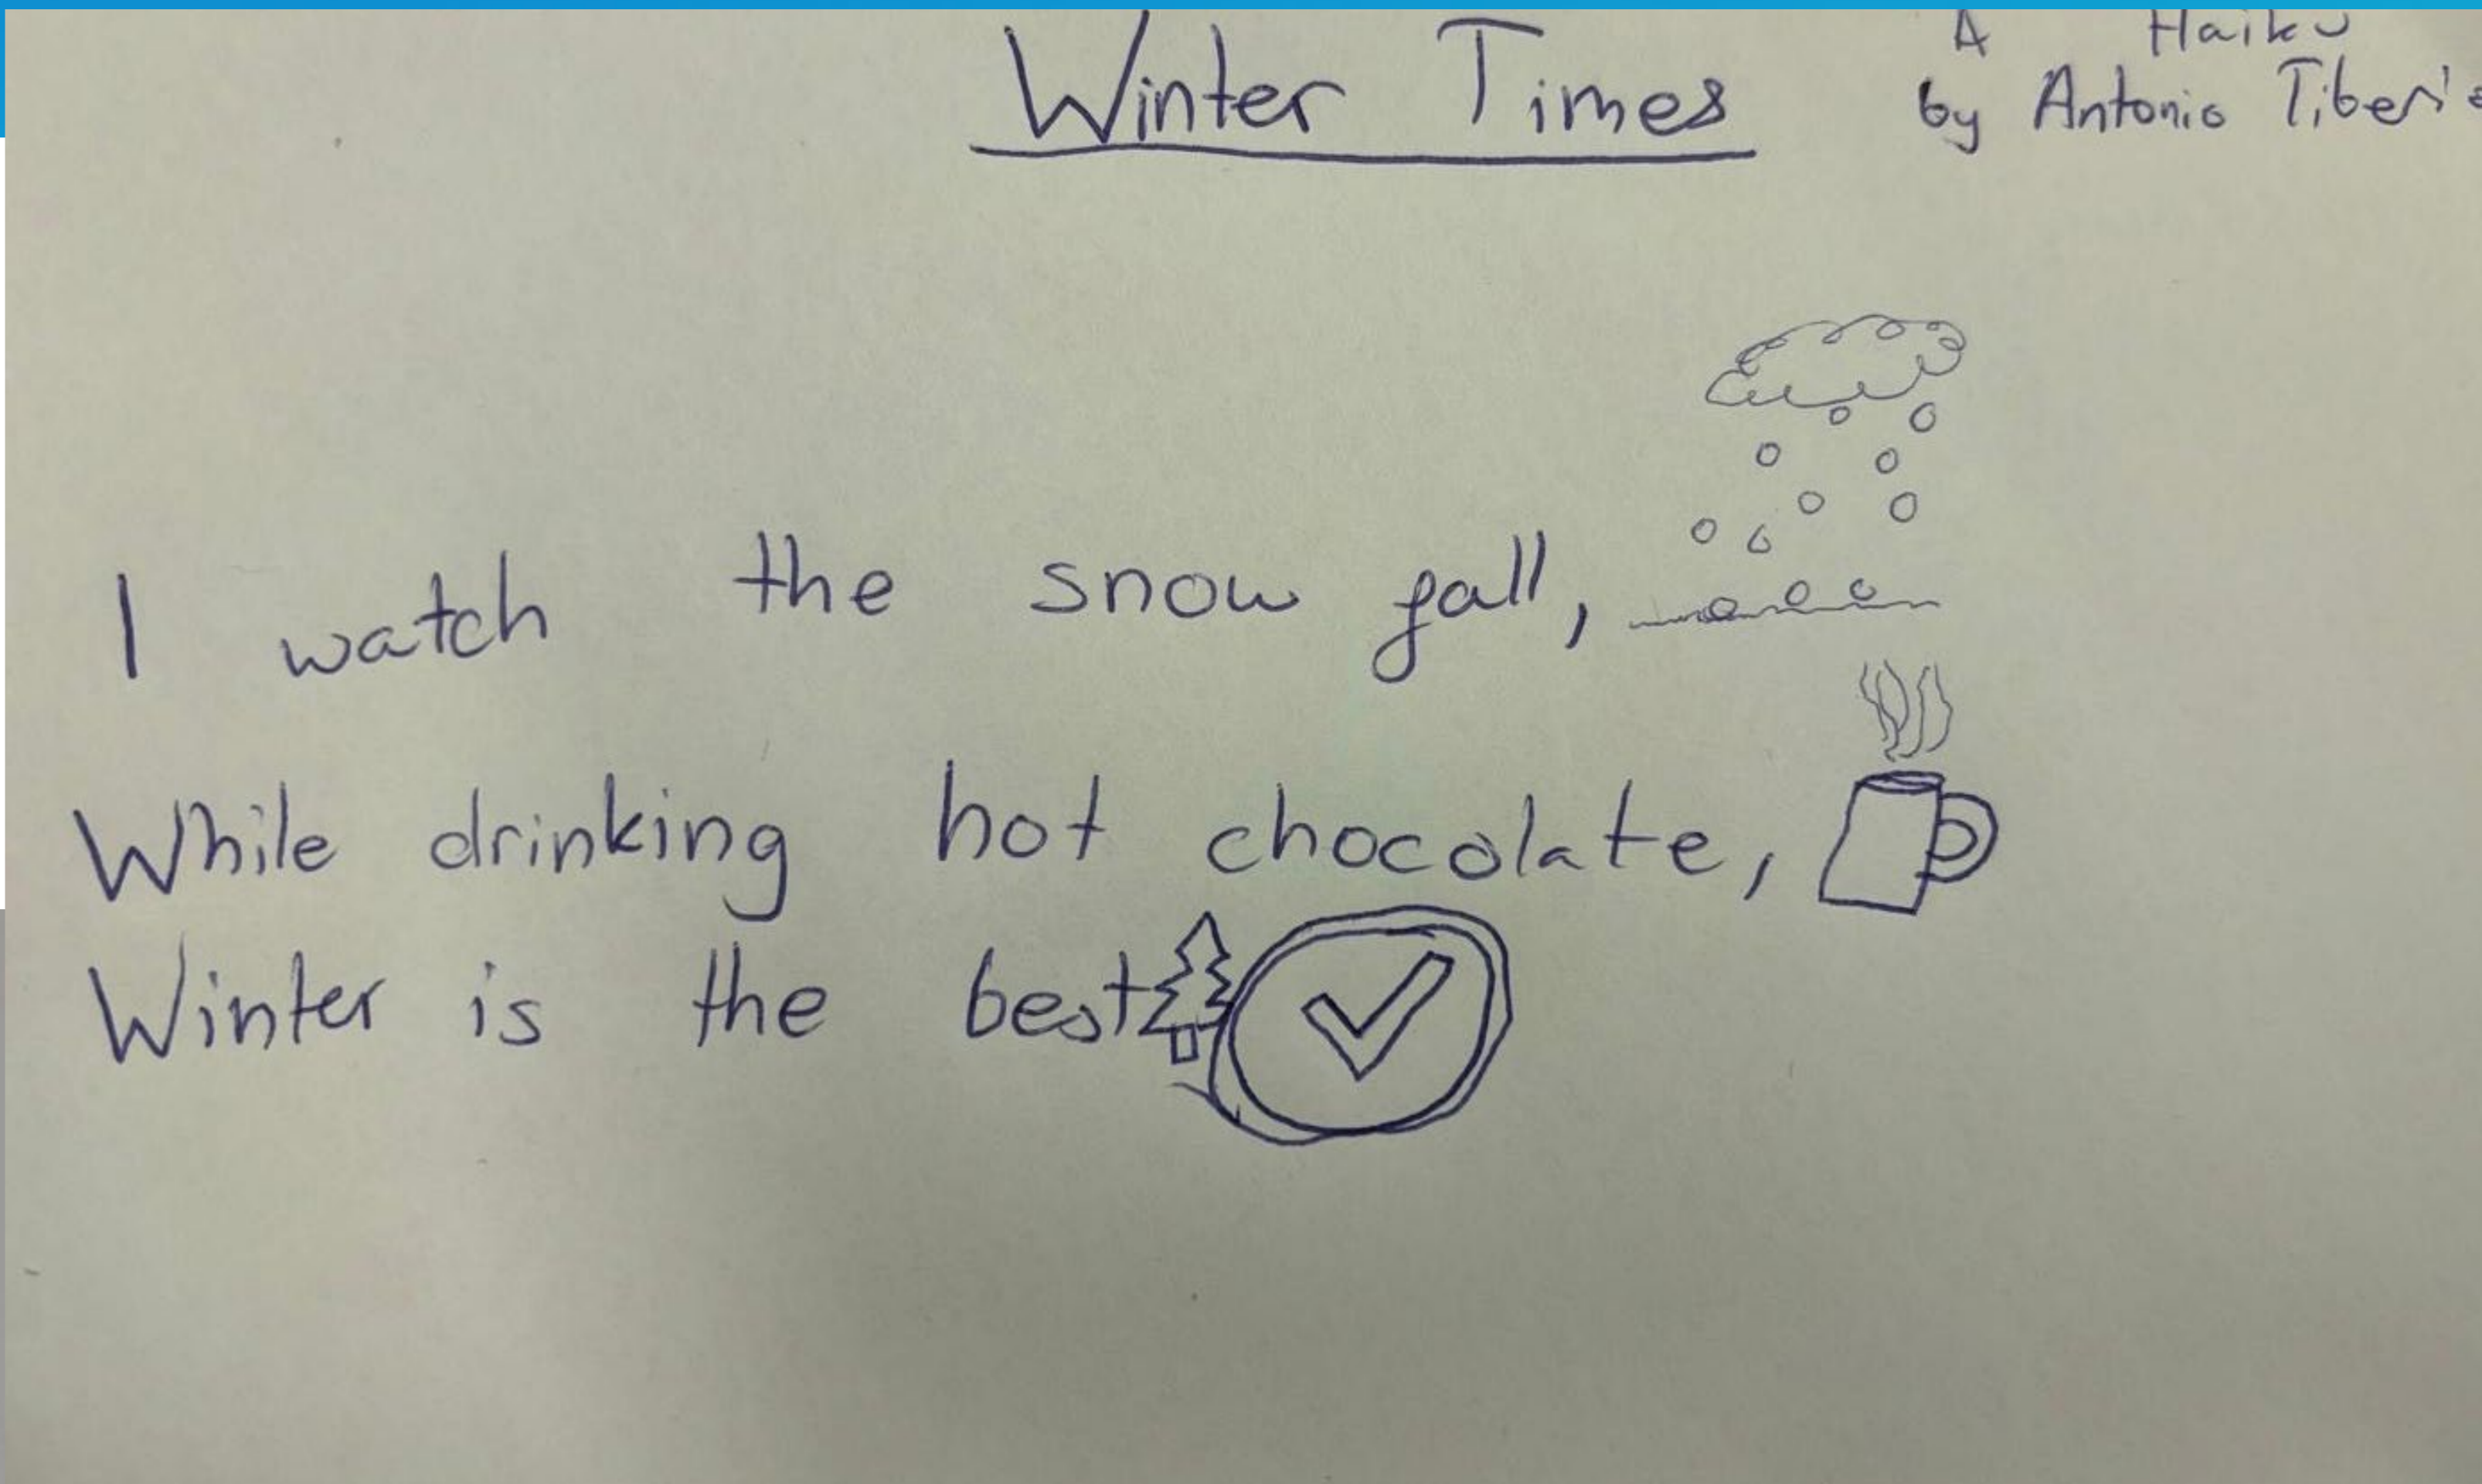 Winter Times
A Haiku
by Antonio
I watch the snow fall,
While drinking hot chocolate,
Winter is the best